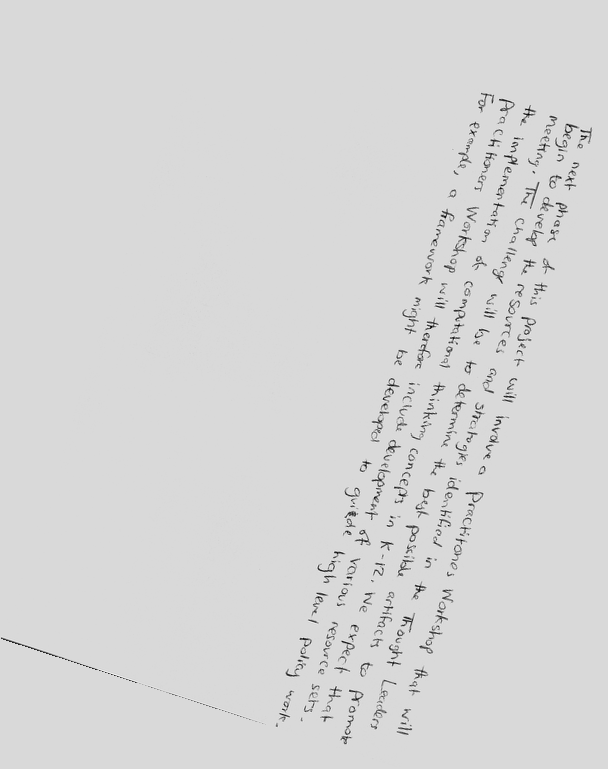 The next phase of this project will involve a Practitones Workshop that will
begin to develop the resources and stratagies identified in the Thought Leaders
meeting. The challenge will be to determine the best possible artifacts to promote
the implementation of computational thinking concepts in K-12. We expect that
Practitioners Workshop will therefore include development of various resource sets.
For example, a framework might be developed to guide high level policy work.